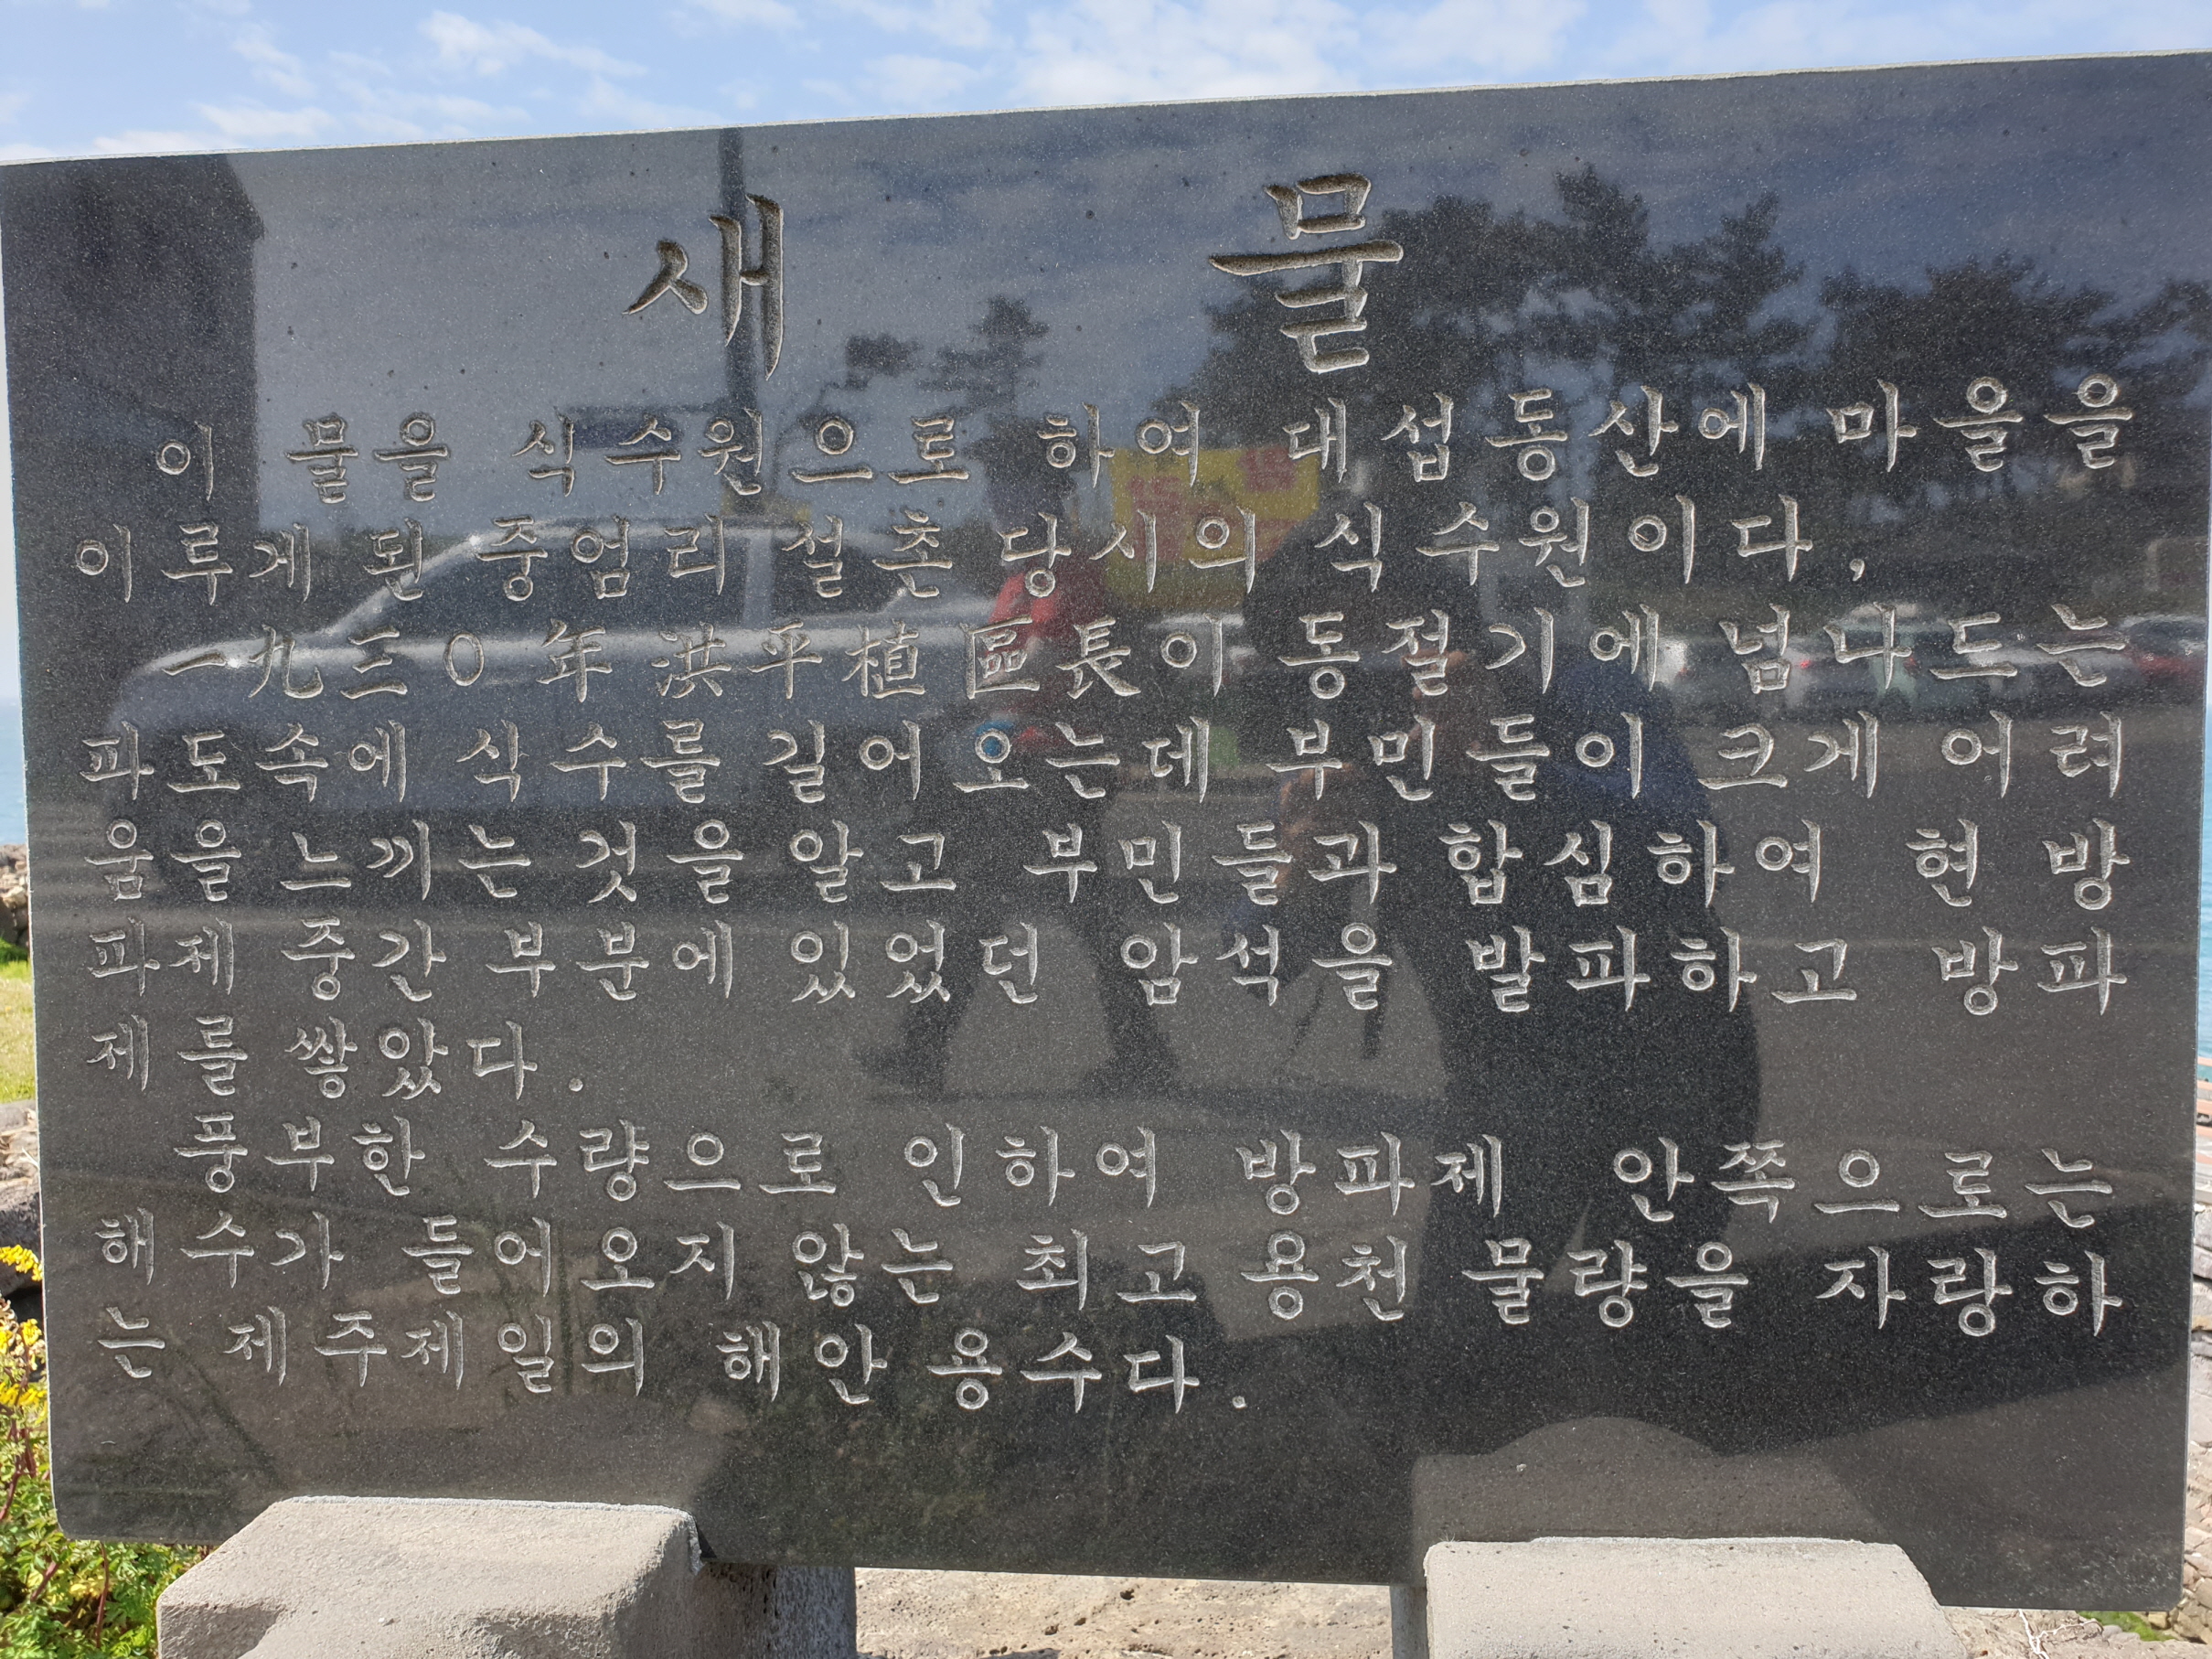 새 물
이 물을 식수원으로 하여 대섭동산에 마을을
이루게 된 중엄리 설촌 당시의 식수원이다,
一九三〇年 洪平植 區長이 동절기에 넘나드는
파도속에 식수를 길어오는데 부민들이 크게 어려
움을 느끼는 것을 알고 부민들과 합심하여 현 방
파제 중간 부분에 있었던 암석을 발파하고 방파
제를 쌓았다.
풍부한 수량으로 인하여 방파제 안쪽으로는
해수가 들어오지 않는 최고 용천 물량을 자랑하
는 제주제일의 해안 용수다.